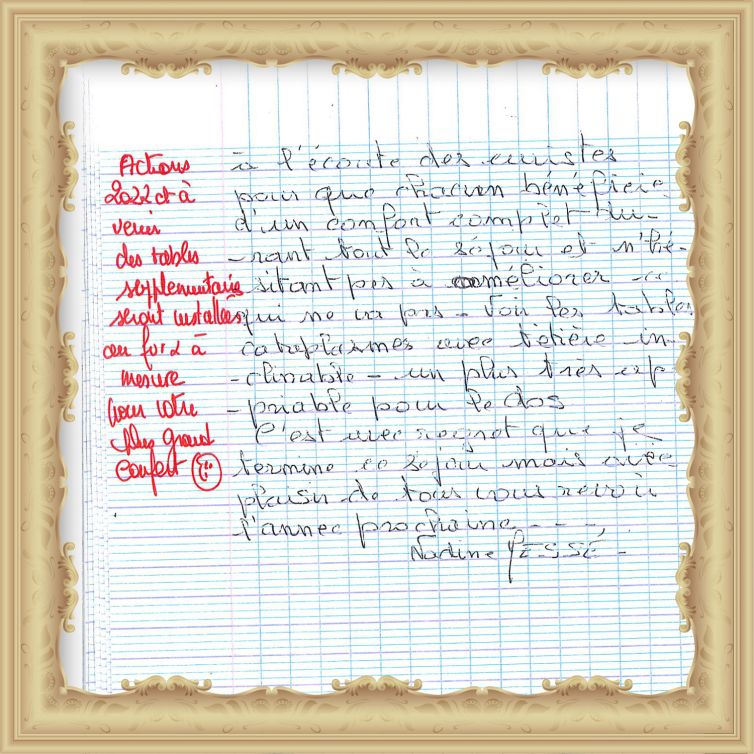 Actions
2022 et à
venir
des tables
supplémentaires
seront installées
au fur & à
mesure
pour votre
plus grand
confort
à l'écoute des curistes
pour que chacun bénéficie
d'un confort complet du-
-rant tout le séjour et n'hé-
sitant pas à améliorer ce
qui ne va pas - Voir les tables
cataplasmes avec têtière in-
-clinable - un plus très
pour le dos
C'est avec regret que je
termine ce séjour mais avec
plaisir de tous vous revoir
l'année prochaine - - -,
Nadine